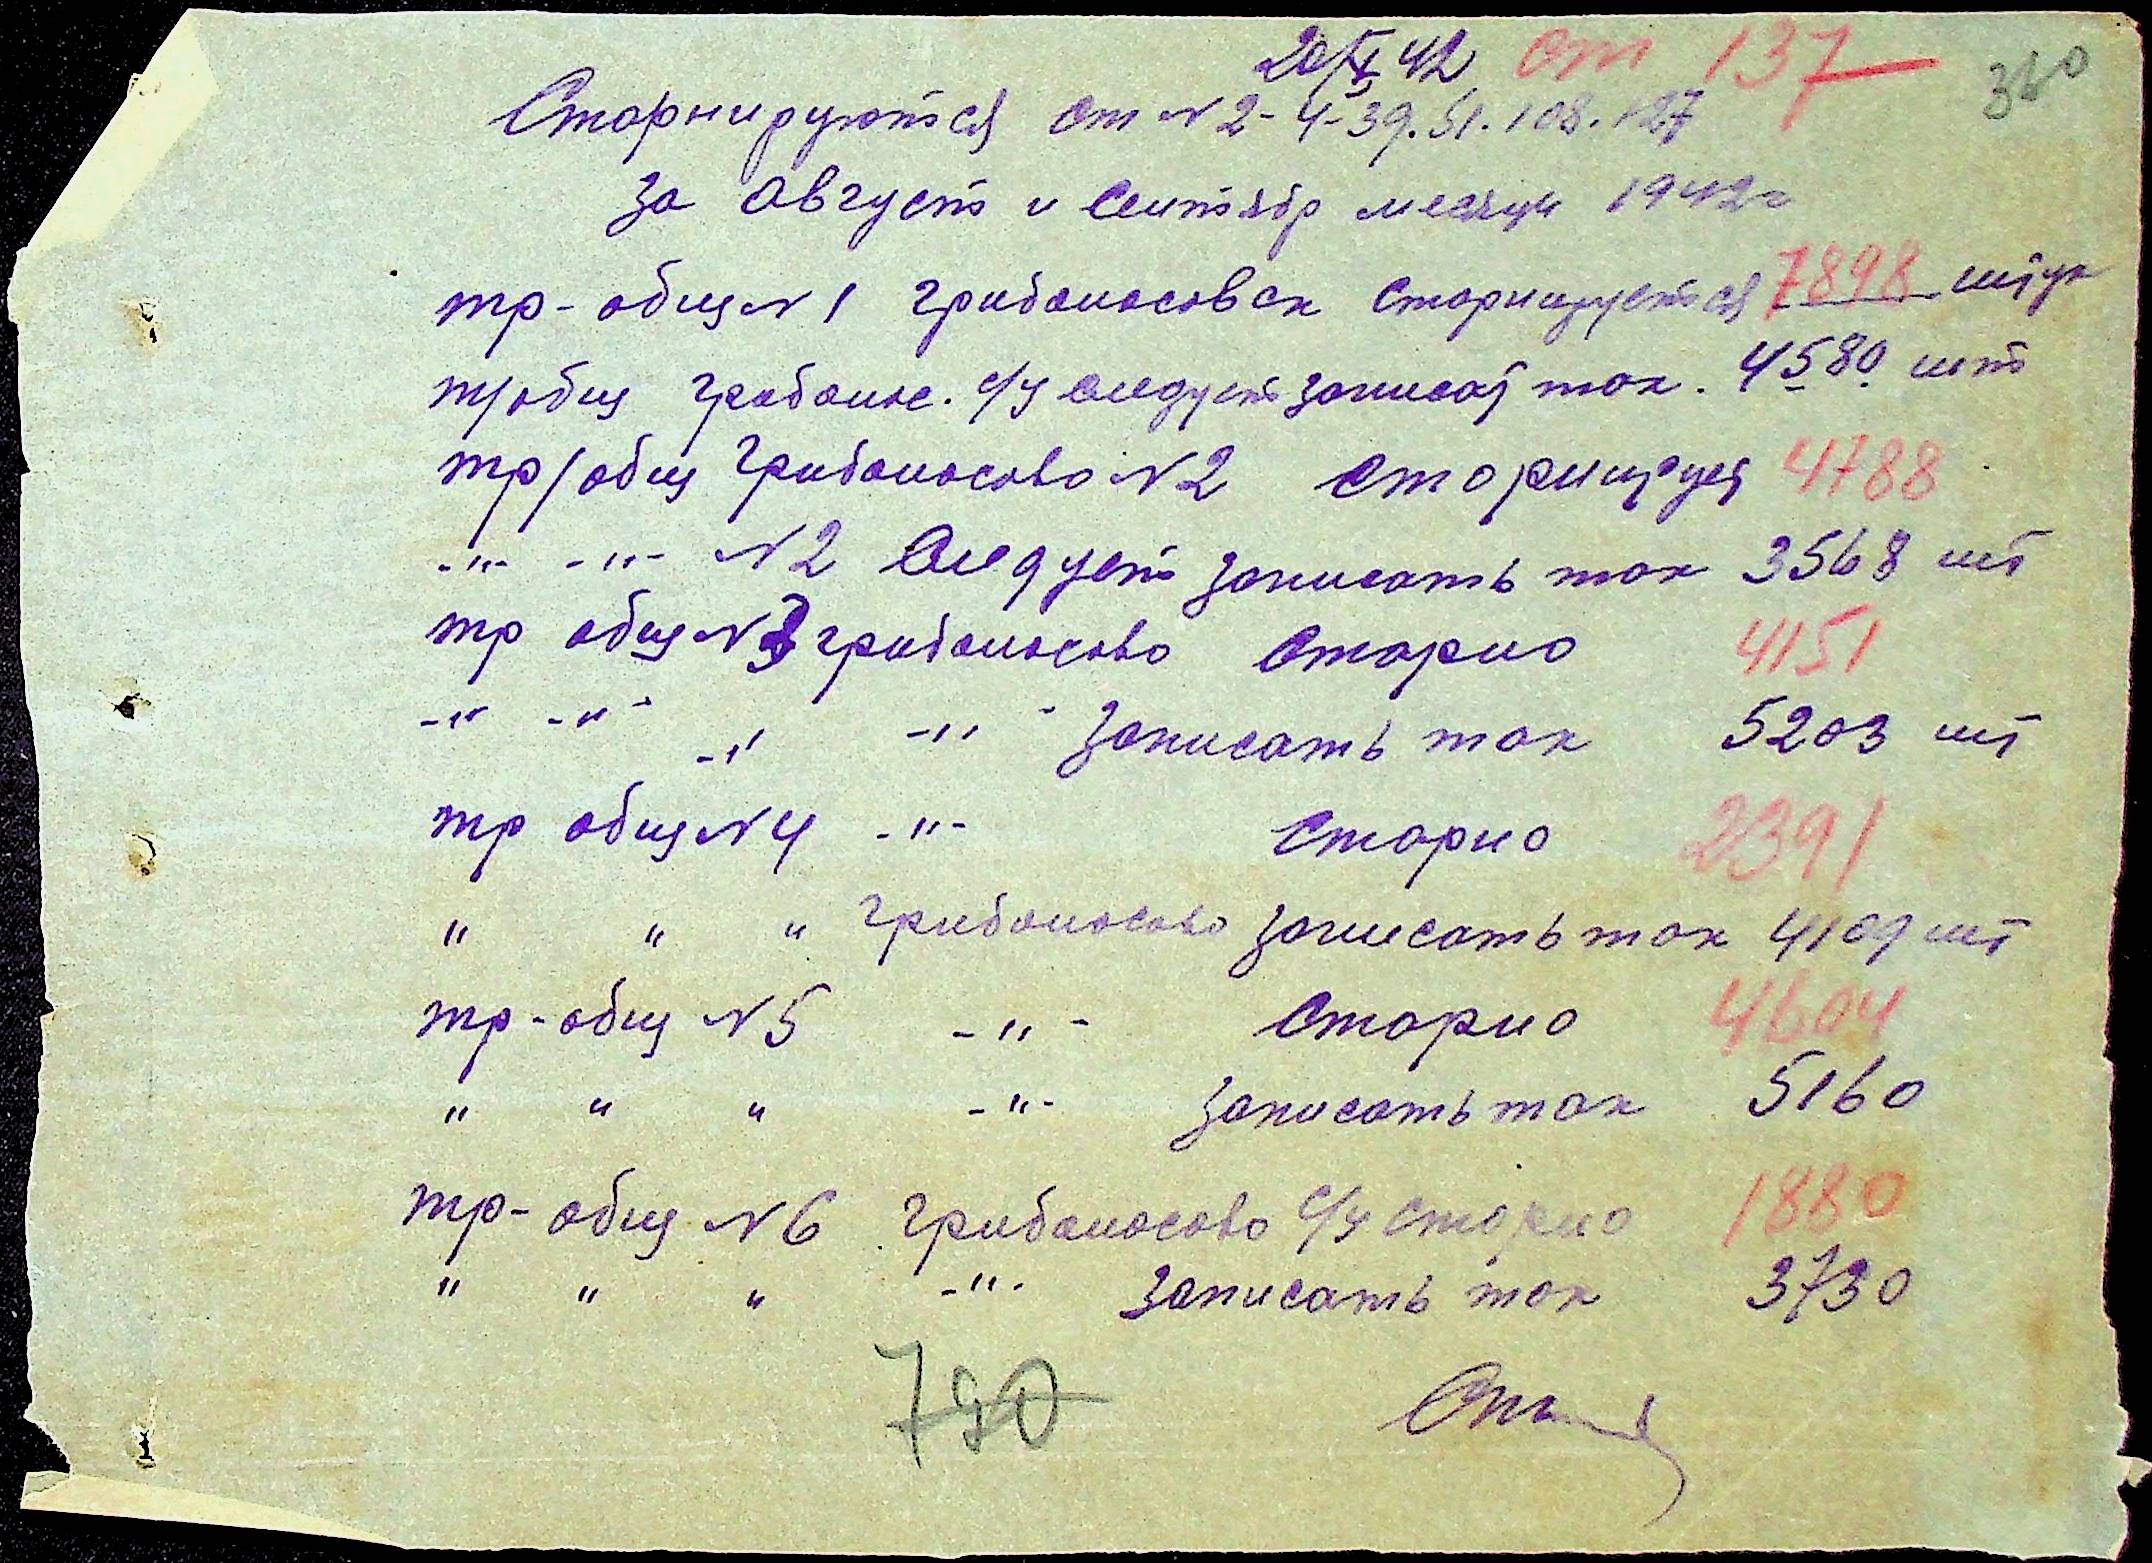 20/X 42 от 137
Сторнируются от N 2-4-39.51.108.127
за август и сентябр месяцы 1942г
тр-общ N 1 грибаносовск сторнируется 7898 штук
тр/общ грибанос. с/у следует записат так. 4580 шт
тр/общ Грибаносово N 2 сторнируя 4788
-"- -"- N 2 следует записать так 3568 шт
тр общ N 3 грибаносово сторно 4151
-"- -"- -" -"- записать так 5203 шт
тр общ N 4 -"- сторно 2391
" " " грибаносово записать так 4109 шт
тр-общ N 5 -"- сторно 4604
" " " -"- записать так 5160
тр-общ N 6 грибаносово с/у сторно 1880
" " " -"- записать так 3730
790